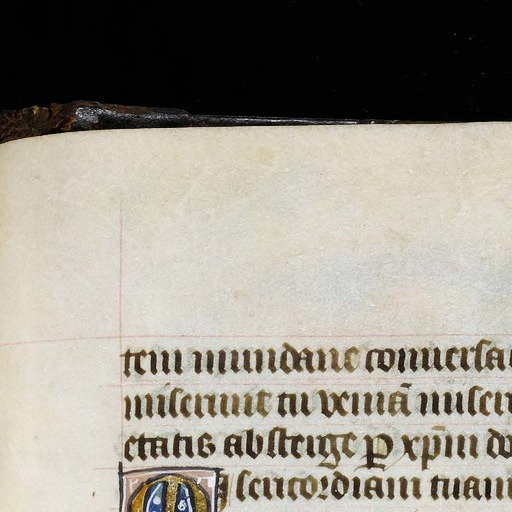 tem mundane conuersa
miserunt tu ueniā miseri
etatis absterge ꝑ xp̄m do
M sericordiam tuam